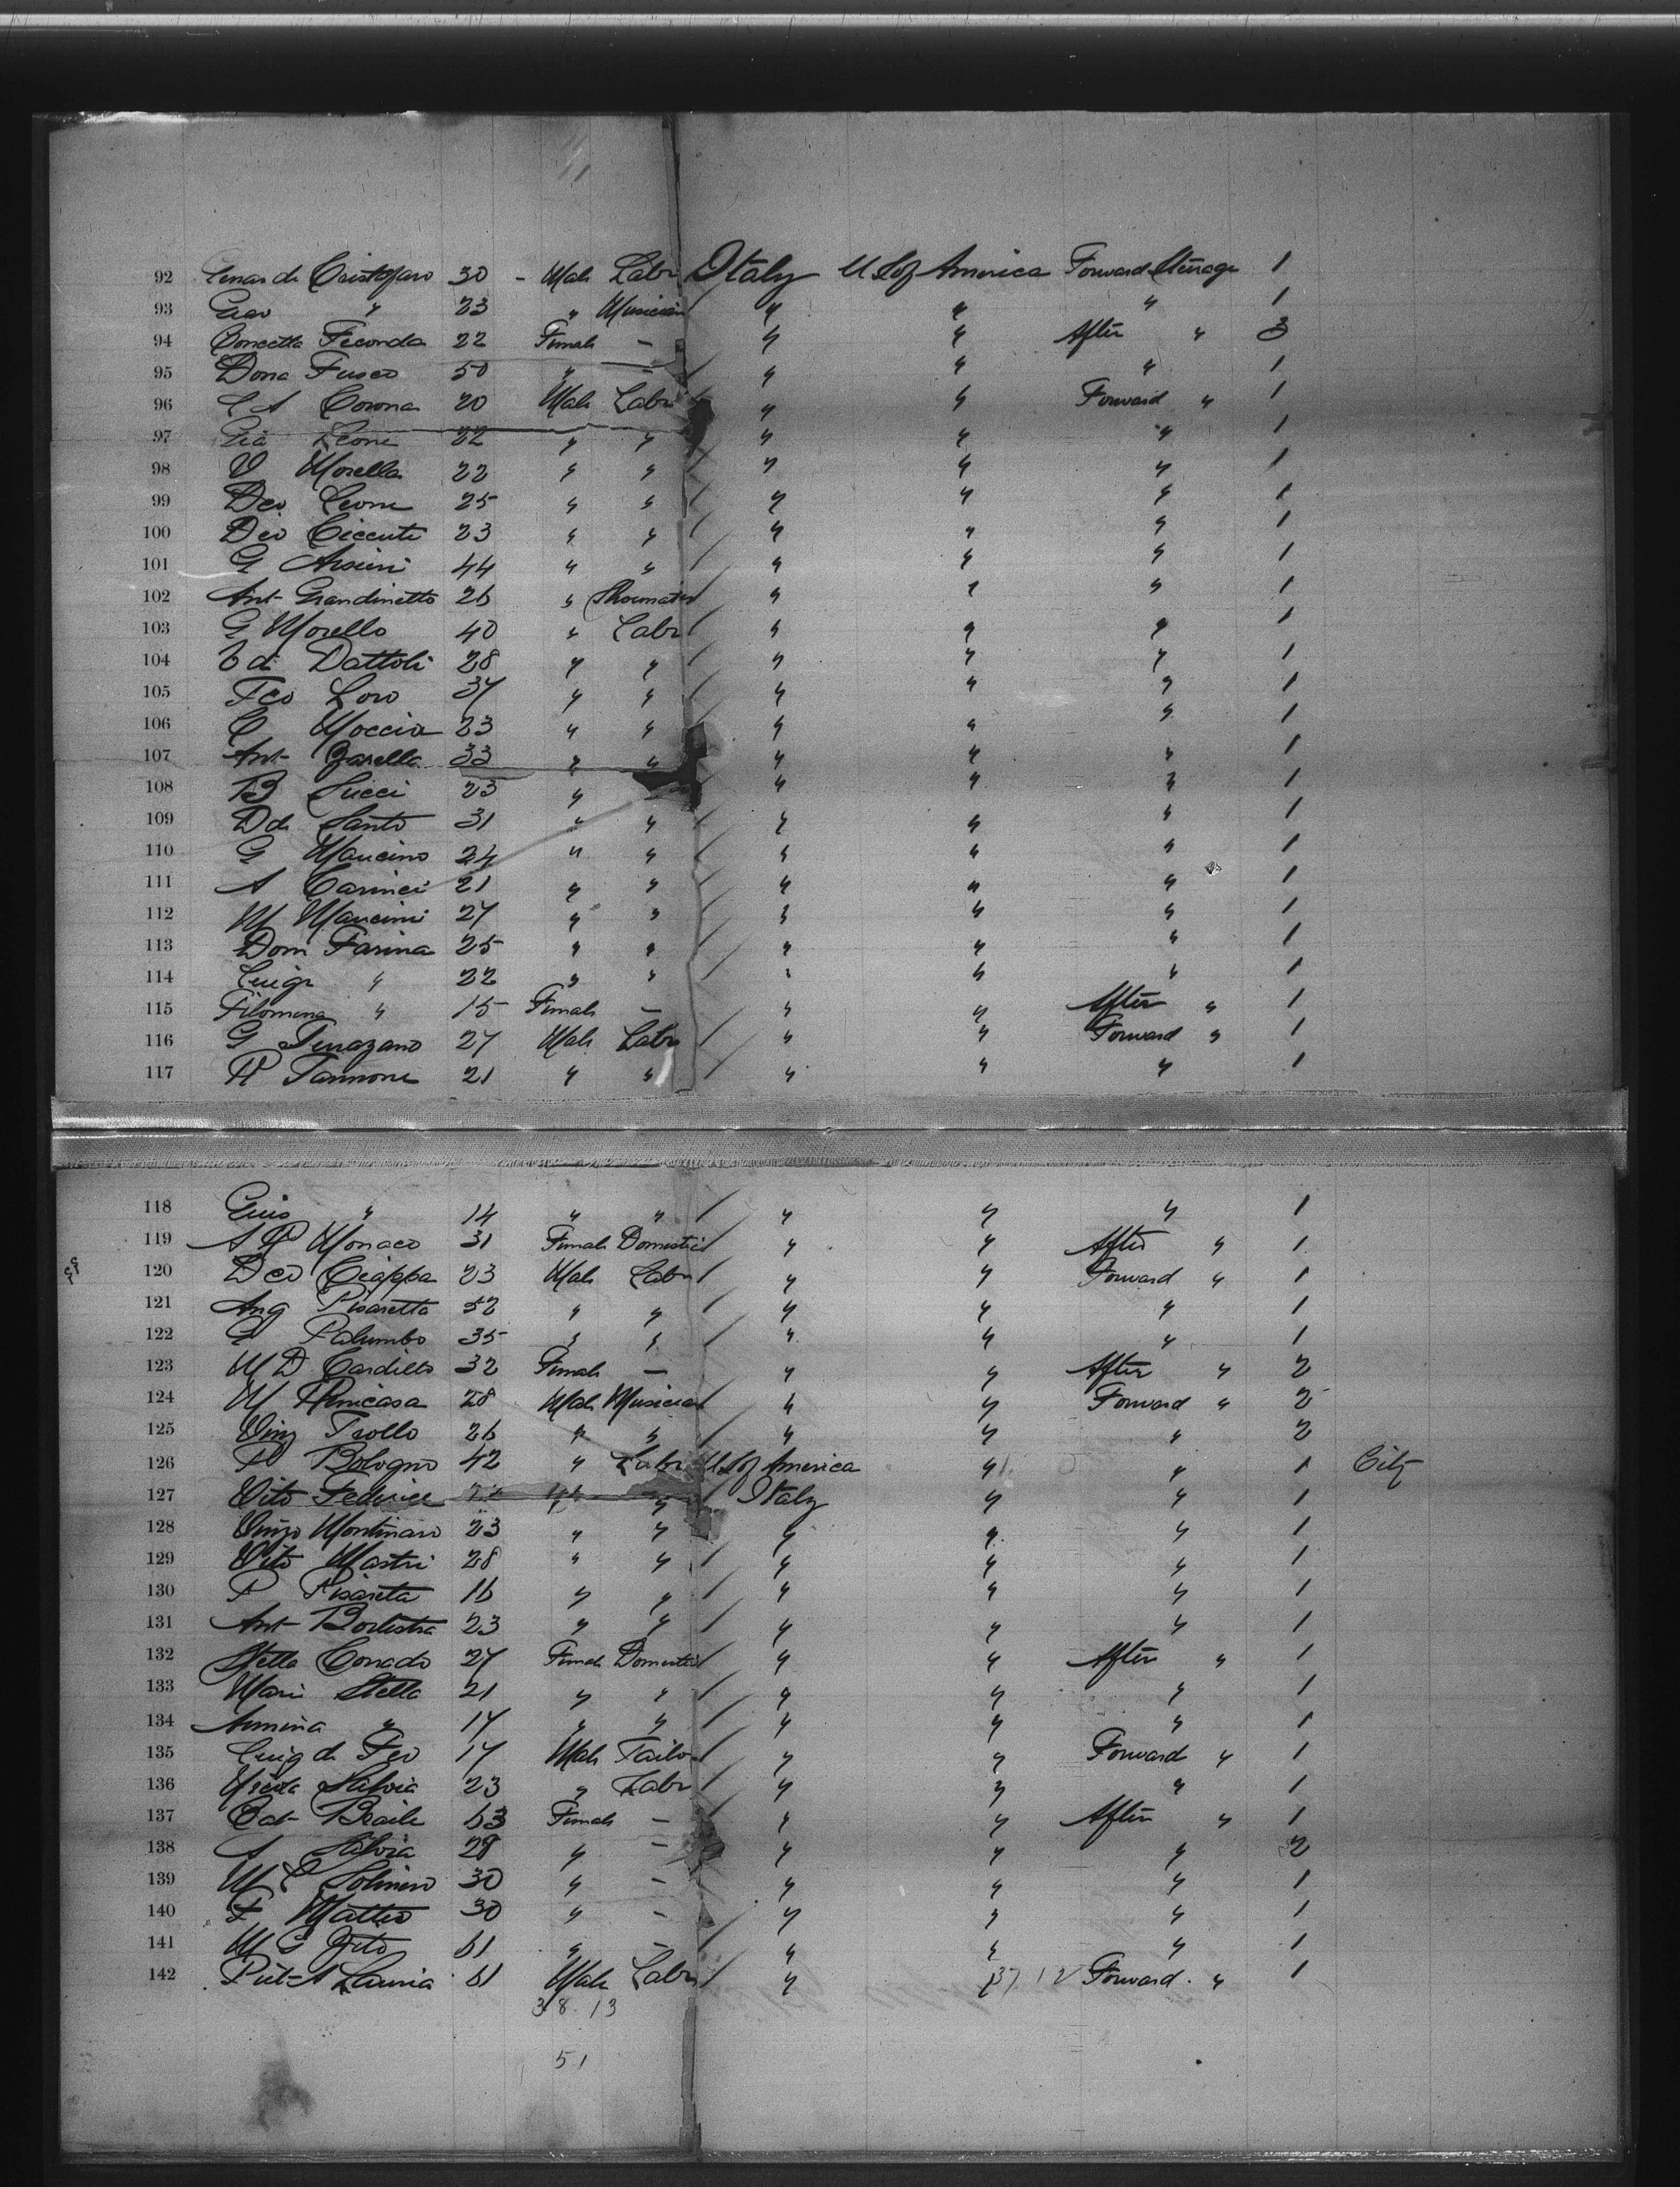 92 de Cristofaro 30 - Male Labr Italy U S of America Forward Steerage 1
93 " 23 " Musician " " " 1
94 Concetta Feconda 22 Female - " " After " 3
95 Dona Fusco 50 " - " " " 1
96 Corona 20 Male Labr " " Forward " 1
97 Leone 22 " " " " " 1
98 V Morella 22 " " " " " 1
99 Leone 25 " " " " " 1
100 Ciccuti 23 " " " " " 1
101 G 44 " " " " " 1
102 Ant Grandinetto 26 " Shoemaker " " " 1
103 G Morello 40 " Labr " " " 1
104 di Dattoli 28 " " " " " 1
105 Fco Loro 37 " " " " " 1
106 C Moccia 23 " " " " " 1
107 Ant Zarella 33 " " " " " 1
108 B Succi 23 " " " " 1
109 D di Santo 31 " " " " " 1
110 G Mancino 24 " " " " " 1
111 A Carinci 21 " " " " " 1
112 M Mancini 27 " " " " " 1
113 Dom Farina 25 " " " " " 1
114 Luigi " 22 " " " " " 1
115 Filomena " 15 Female - " " After " 1
116 G Terrazano 27 Male Labr " " Forward " 1
117 P Iannone 21 " " " " " 1
118 " 14 " " " " " 1
119 A P Monaco 31 Female Domestic " " After " 1
120 Dco Ciappa 23 Male Labr " " Forward " 1
121 Ang Pisaretta 52 " " " " " 1
122 G Palumbo 35 " " " " " 1
123 M D Cardillo 32 Female - " " After " 2
124 M 28 Male Musician " " Forward " 2
125 Vinz Trollo 26 " " " " " 2
126 P Bologno 42 " Labr U S of America " " 1 City
127 Vito Federice " Italy " " 1
128 Vinzo Montinaro 23 " " " " " 1
129 Vito Mastri 28 " " " " " 1
130 P Pisareta 16 " " " " " 1
131 Ant 23 " " " " " 1
132 Stella Conado 27 Female Domestic " " After " 1
133 Mari Stella 21 " " " " " 1
134 Armina " 17 " " " " " 1
135 Luig de Feo 17 Male Tailor " " Forward " 1
136 Salvia 23 " Labr " " " 1
137 Cat Braile 63 Female - " " After " 1
138 A Salvia 28 " - " " " 2
139 M C Solimeno 30 " - " " " 1
140 F Matteo 30 " - " " " 1
141 M G Vito 61 " - " " " 1
142 Piet A Lauria 61 Male Labr " " 37 12 Forward " 1
38 13
51